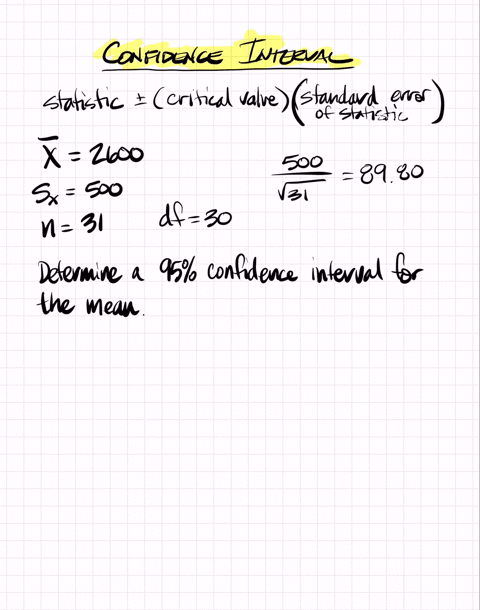 CONFIDENCE INTERVAL
statistic ± (critical value)(standard error of statistic)
x̄ = 2600
Sx = 500
n = 31 df = 30
500/√31 = 89.80
Determine a 95% confidence interval for
the mean.